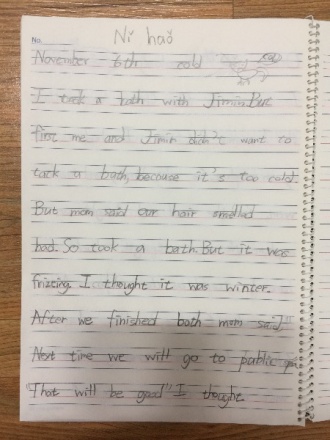 No.
Ni haǒ
November 6th cold
I took a bath with Jimin.But
first me and Jimin didn't want to
tack a bath, because it's too cold.
But mom said our hair smelled
bad. So took a bath. But it was
frizeing. I thought it was winter.
After we finished bath mom said,"
Next time we will go to public
"That will be good" I thought.